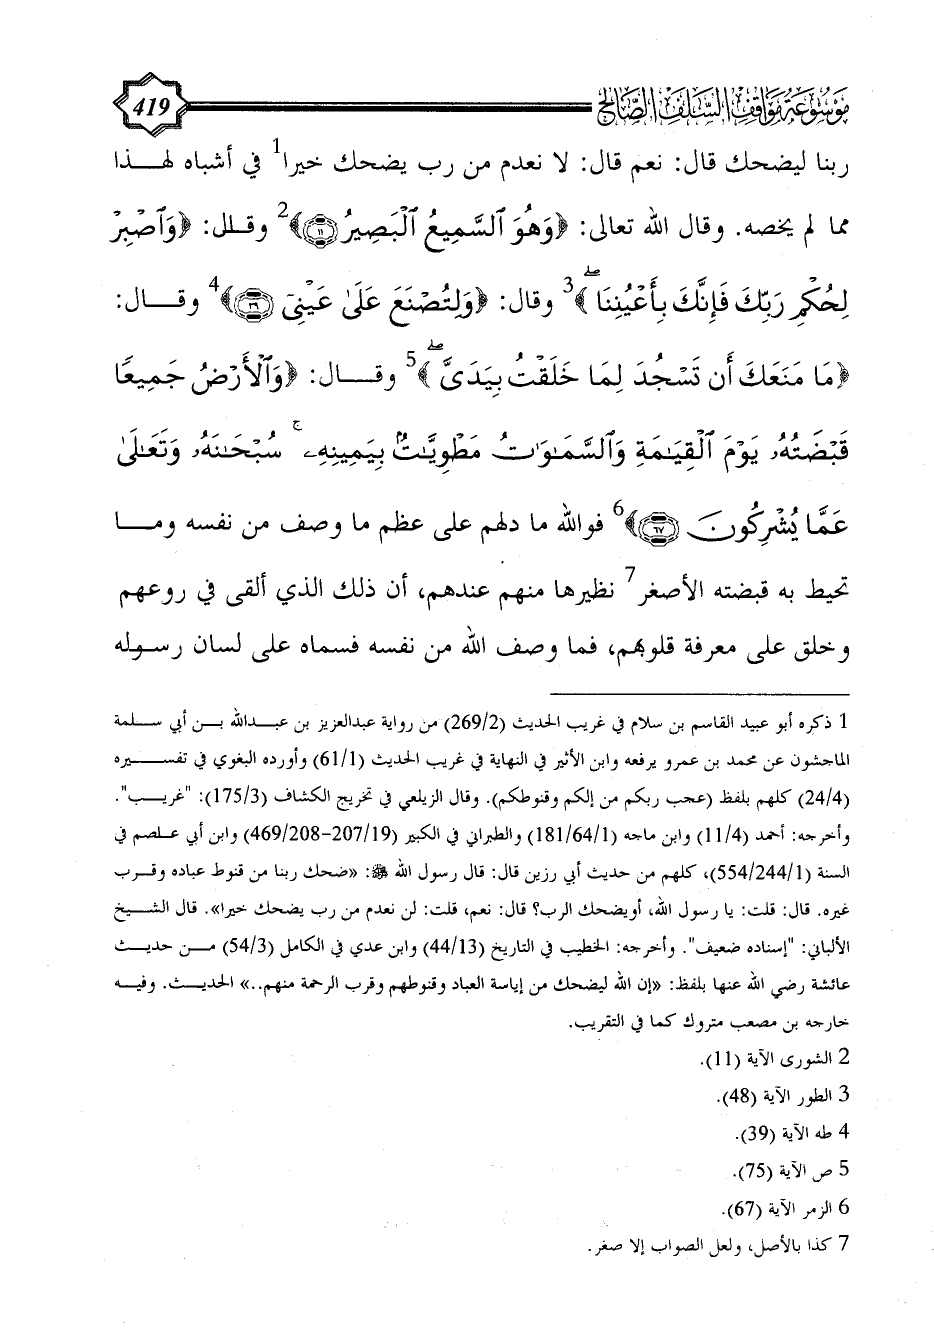 موسوعة مواقف السلف الصالح
419
ربنا ليضحك قال: نعم قال: لا نعدم من رب يضحك خيرا1 في أشباه لهذا
مما لم يخصه. وقال الله تعالى: ﴿وَهُوَ السَّمِيعُ الْبَصِيرُ ١١﴾2 وقلل: ﴿وَاصْبِرْ
لِحُكْمِ رَبِّكَ فَإِنَّكَ بِأَعْيُنِنَا ۖ﴾3 وقال: ﴿وَلِتُصْنَعَ عَلَىٰ عَيْنِي ٣٩﴾4 وقال:
﴿مَا مَنَعَكَ أَن تَسْجُدَ لِمَا خَلَقْتُ بِيَدَيَّ ۖ﴾5 وقال: ﴿وَالْأَرْضُ جَمِيعًا
قَبْضَتُهُۥ يَوْمَ الْقِيَـٰمَةِ وَالسَّمَـٰوَٰتُ مَطْوِيَّـٰتٌۢ بِيَمِينِهِۦ ۚ سُبْحَـٰنَهُۥ وَتَعَـٰلَىٰ
عَمَّا يُشْرِكُونَ ٦٧﴾6 فوالله ما دلهم على عظم ما وصف من نفسه وما
تحيط به قبضته الأصغر7 نظيرها منهم عندهم، أن ذلك الذي ألقى في روعهم
وخلق على معرفة قلوبهم، فما وصف الله من نفسه فسماه على لسان رسوله
1 ذكره أبو عبيد القاسم بن سلام في غريب الحديث (269/2) من رواية عبدالعزيز بن عبدالله بن أبي سلمة
الماجشون عن محمد بن عمرو يرفعه وابن الأثير في النهاية في غريب الحديث (61/1) وأورده البغوي في تفسيره
(24/4) كلهم بلفظ (عجب ربكم من إلكم وقنوطكم). وقال الزيلعي في تخريج الكشاف (175/3): "غريب".
وأخرجه: أحمد (11/4) وابن ماجه (181/64/1) والطبراني في الكبير (469/208-207/19) وابن أبي عاصم في
السنة (554/244/1)، كلهم من حديث أبي رزين قال: قال رسول الله ﷺ: «ضحك ربنا من قنوط عباده وقرب
غيره. قال: قلت: يا رسول الله، أويضحك الرب؟ قال: نعم، قلت: لن نعدم من رب يضحك خيرا». قال الشيخ
الألباني: "إسناده ضعيف". وأخرجه: الخطيب في التاريخ (44/13) وابن عدي في الكامل (54/3) من حديث
عائشة رضي الله عنها بلفظ: «إن الله ليضحك من إياسة العباد وقنوطهم وقرب الرحمة منهم..» الحديث. وفيه
خارجه بن مصعب متروك كما في التقريب.
2 الشورى الآية (11).
3 الطور الآية (48).
4 طه الآية (39).
5 ص الآية (75).
6 الزمر الآية (67).
7 كذا بالأصل، ولعل الصواب إلا صغر.